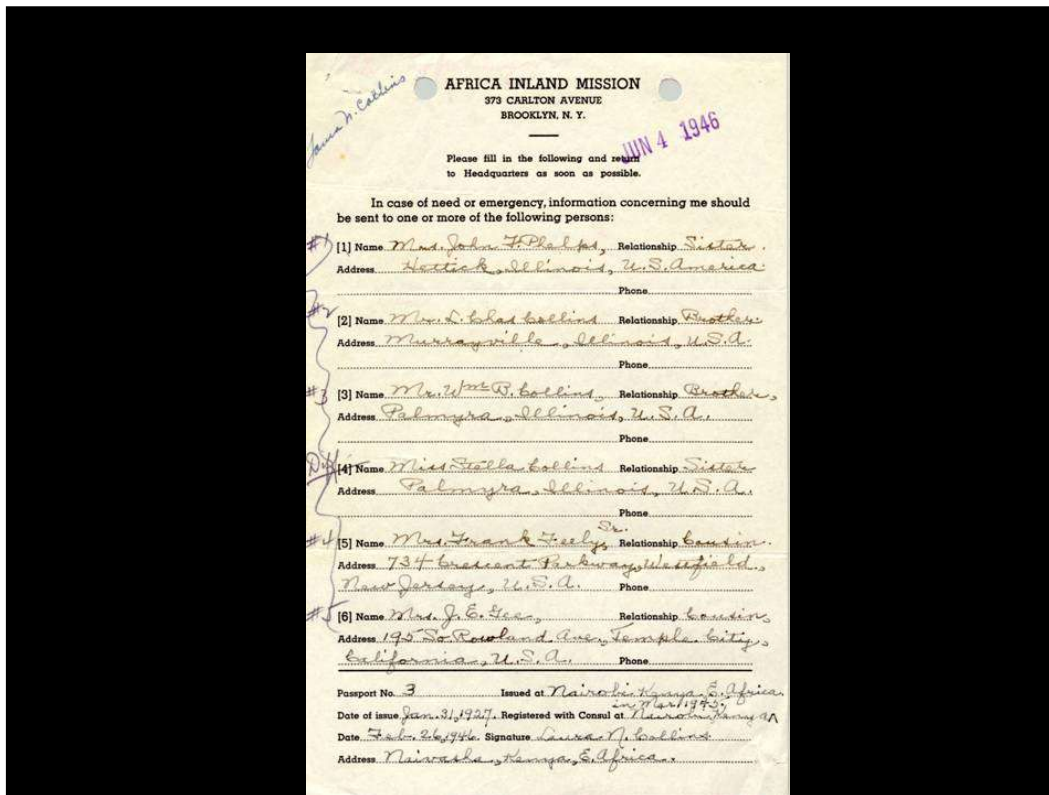 Laura N. Collins
AFRICA INLAND MISSION
373 CARLTON AVENUE
BROOKLYN, N. Y.
JUN 4 1946
Please fill in the following and return
to Headquarters as soon as possible.
In case of need or emergency, information concerning me should
be sent to one or more of the following persons:
#1 [1] Name Mrs. John F. Phelps, Relationship Sister.
Address Hettick, Illinois, U.S. America
Phone
#2
[2] Name Mr. L. Chas Collins Relationship Brother.
Address Murrayville, Illinois, U.S.A.
Phone
#3 [3] Name Mr. Wm B. Collins, Relationship Brother,
Address Palmyra, Illinois, U.S.A.
Phone
[4] Name Miss Stella Collins Relationship Sister
Address Palmyra, Illinois, U.S.A.
Phone
#4 [5] Name Mrs. Frank Feely, Sr. Relationship Cousin.
Address 734 Crescent Parkway, Westfield,
New Jersey, U.S.A. Phone
#5 [6] Name Mrs. J. E. Gee, Relationship Cousin,
Address 195 So Rowland Ave., Temple City,
California, U.S.A. Phone
Passport No. 3 Issued at Nairobi, Kenya, E. Africa.
in Mar. 1945.
Date of issue Jan. 31, 1927. Registered with Consul at Nairobi, Kenya
Date Feb. 26, 1946. Signature Laura N. Collins
Address Naivasha, Kenya, E. Africa.